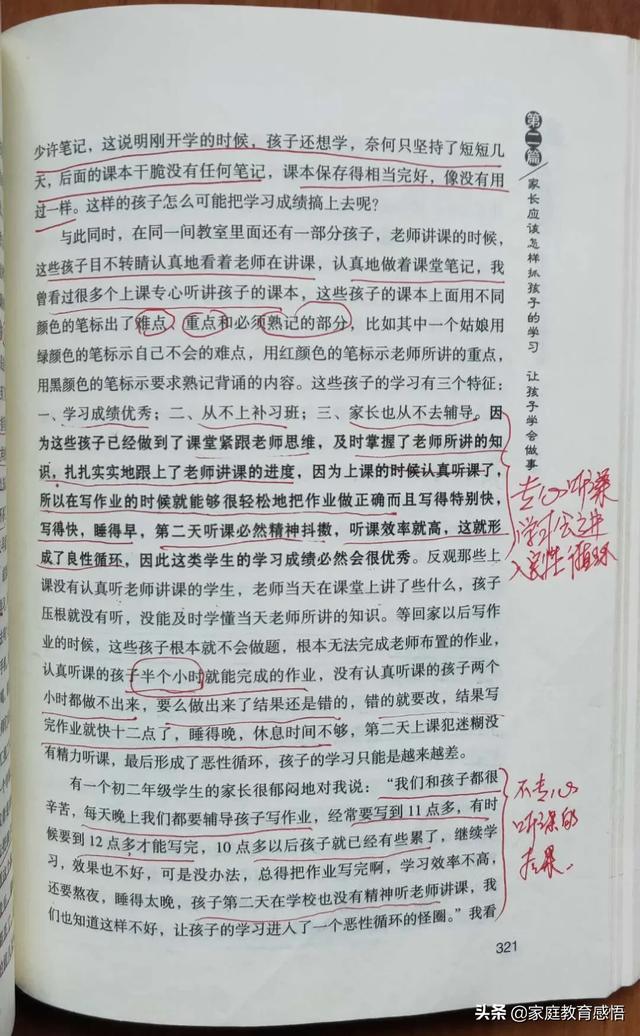 少许笔记，这说明刚开学的时候，孩子还想学，奈何只坚持了短短几
天，后面的课本干脆没有任何笔记，课本保存得相当完好，像没有用
过一样。这样的孩子怎么可能把学习成绩搞上去呢？
与此同时，在同一间教室里面还有一部分孩子，老师讲课的时候，
这些孩子目不转睛认真地看着老师在讲课，认真地做着课堂笔记，我
曾看过很多个上课专心听讲孩子的课本，这些孩子的课本上面用不同
颜色的笔标出了难点、重点和必须熟记的部分，比如其中一个姑娘用
绿颜色的笔标示自己不会的难点，用红颜色的笔标示老师所讲的重点，
用黑颜色的笔标示要求熟记背诵的内容。这些孩子的学习有三个特征：
一、学习成绩优秀；二、从不上补习班；三、家长也从不去辅导。因
为这些孩子已经做到了课堂紧跟老师思维，及时掌握了老师所讲的知
识，扎扎实实地跟上了老师讲课的进度，因为上课的时候认真听课了，
所以在写作业的时候就能够很轻松地把作业做正确而且写得特别快，
写得快，睡得早，第二天听课必然精神抖擞，听课效率就高，这就形
成了良性循环，因此这类学生的学习成绩必然会很优秀。反观那些上
课没有认真听老师讲课的学生，老师当天在课堂上讲了些什么，孩子
压根就没有听，没能及时学懂当天老师所讲的知识。等回家以后写作
业的时候，这些孩子根本就不会做题，根本无法完成老师布置的作业，
认真听课的孩子半个小时就能完成的作业，没有认真听课的孩子两个
小时都做不出来，要么做出来了结果还是错的，错的就要改，结果写
完作业就快十二点了，睡得晚，休息时间不够，第二天上课犯迷糊没
有精力听课，最后形成了恶性循环，孩子的学习只能是越来越差。
有一个初二年级学生的家长很郁闷地对我说：“我们和孩子都很
辛苦，每天晚上我们都要辅导孩子写作业，经常要写到11点多，有时
候要到12点多才能写完，10点多以后孩子就已经有些累了，继续学
习，效果也不好，可是没办法，总得把作业写完啊，学习效率不高，
还要熬夜，睡得太晚，孩子第二天在学校也没有精神听老师讲课，我
们也知道这样不好，让孩子的学习进入了一个恶性循环的怪圈。”我看
321
第二篇
家长应该怎样抓孩子的学习 让孩子学会做事
专心听课
学习会进
入良性循环
不专心
听课的
后果
头条 @家庭教育感悟